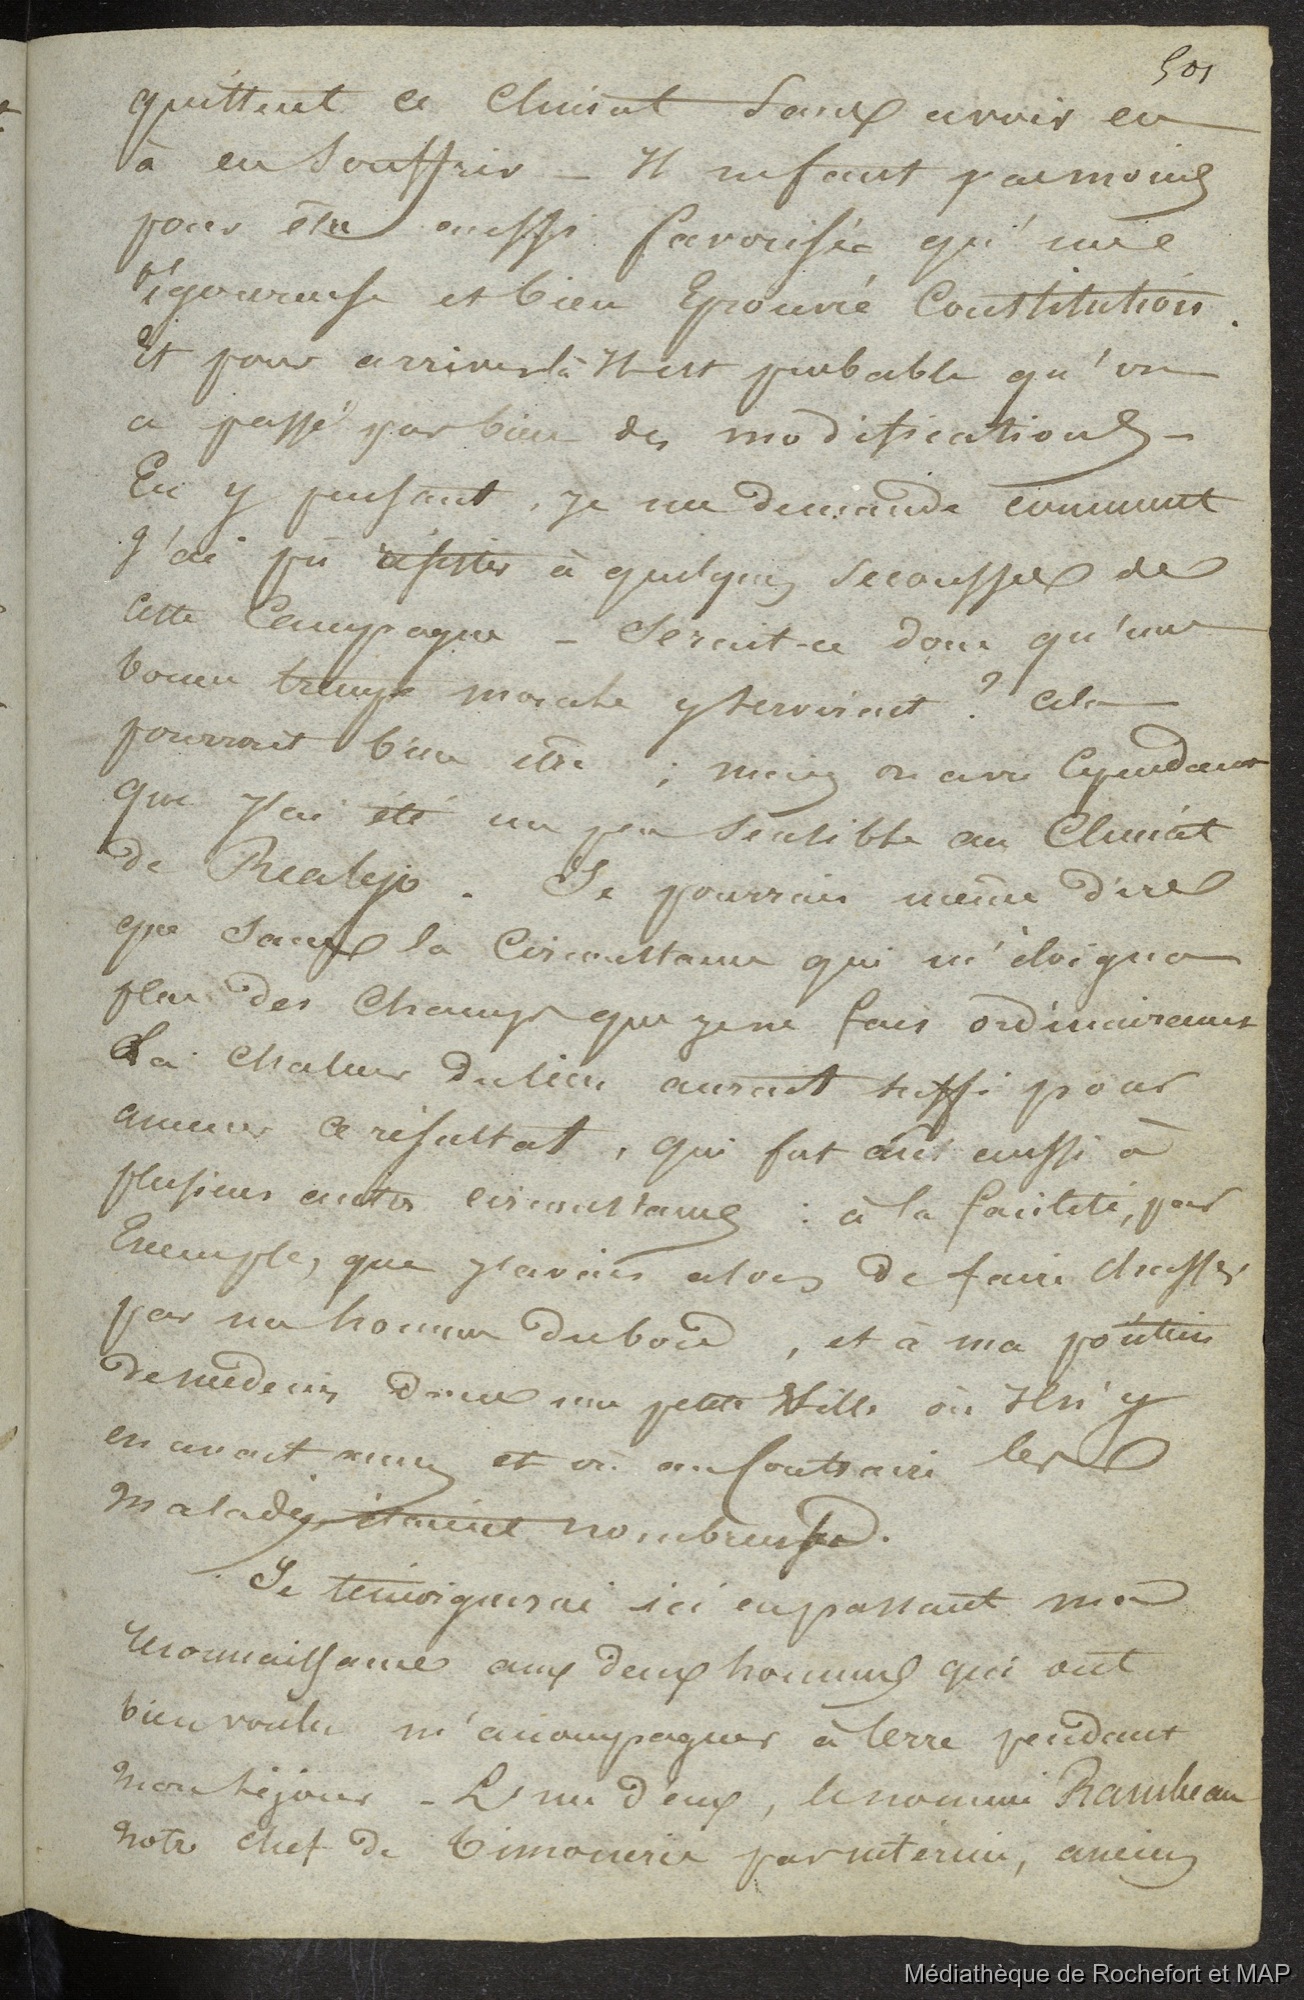 501
quittent ce Climat sans avoir eu
à en souffrir _ Il ne faut pas moins
pour être aussi favorisée qu'une
vigoureuse et bien Eprouvé Constitution.
Et pour arriver là Il est probable qu'on
a passé par bien des modifications_
En y pensant, je me demande comment
J'ai pû résister à quelques secousses de
cette Campagne _ Serait-ce donc qu'une
bonne trempe morale y serviroit ? cela
pourrait bien être ; mais on a vu Cependant
que J'ai été un peu sensible au Climat
de Realejo. Je pourrais même dire
que sans la Circonstance qui m'éloigna
plus des Champs que je ne fais ordinairement
La Chaleur du lieu aurait suffi pour
amener ce résultat, qui fut aussi à
plusieurs autres circonstances : à la facilité, par
Exemple, que J'avais alors de faire chasser
par un homme du bord, et à ma position
de médecin dans une petite Ville où Il n'y
en avait aucun et où au Contraire les
Maladies étaient nombreuses.
Je témoignerai ici en passant ma
reconnaissance aux deux hommes qui ont
bien voulu m'accompagner à terre pendant
mon séjour _ L'un d'eux, le nommé Rambeau
notre chef de Timonerie par intérim, ancien
Médiathèque de Rochefort et MAP